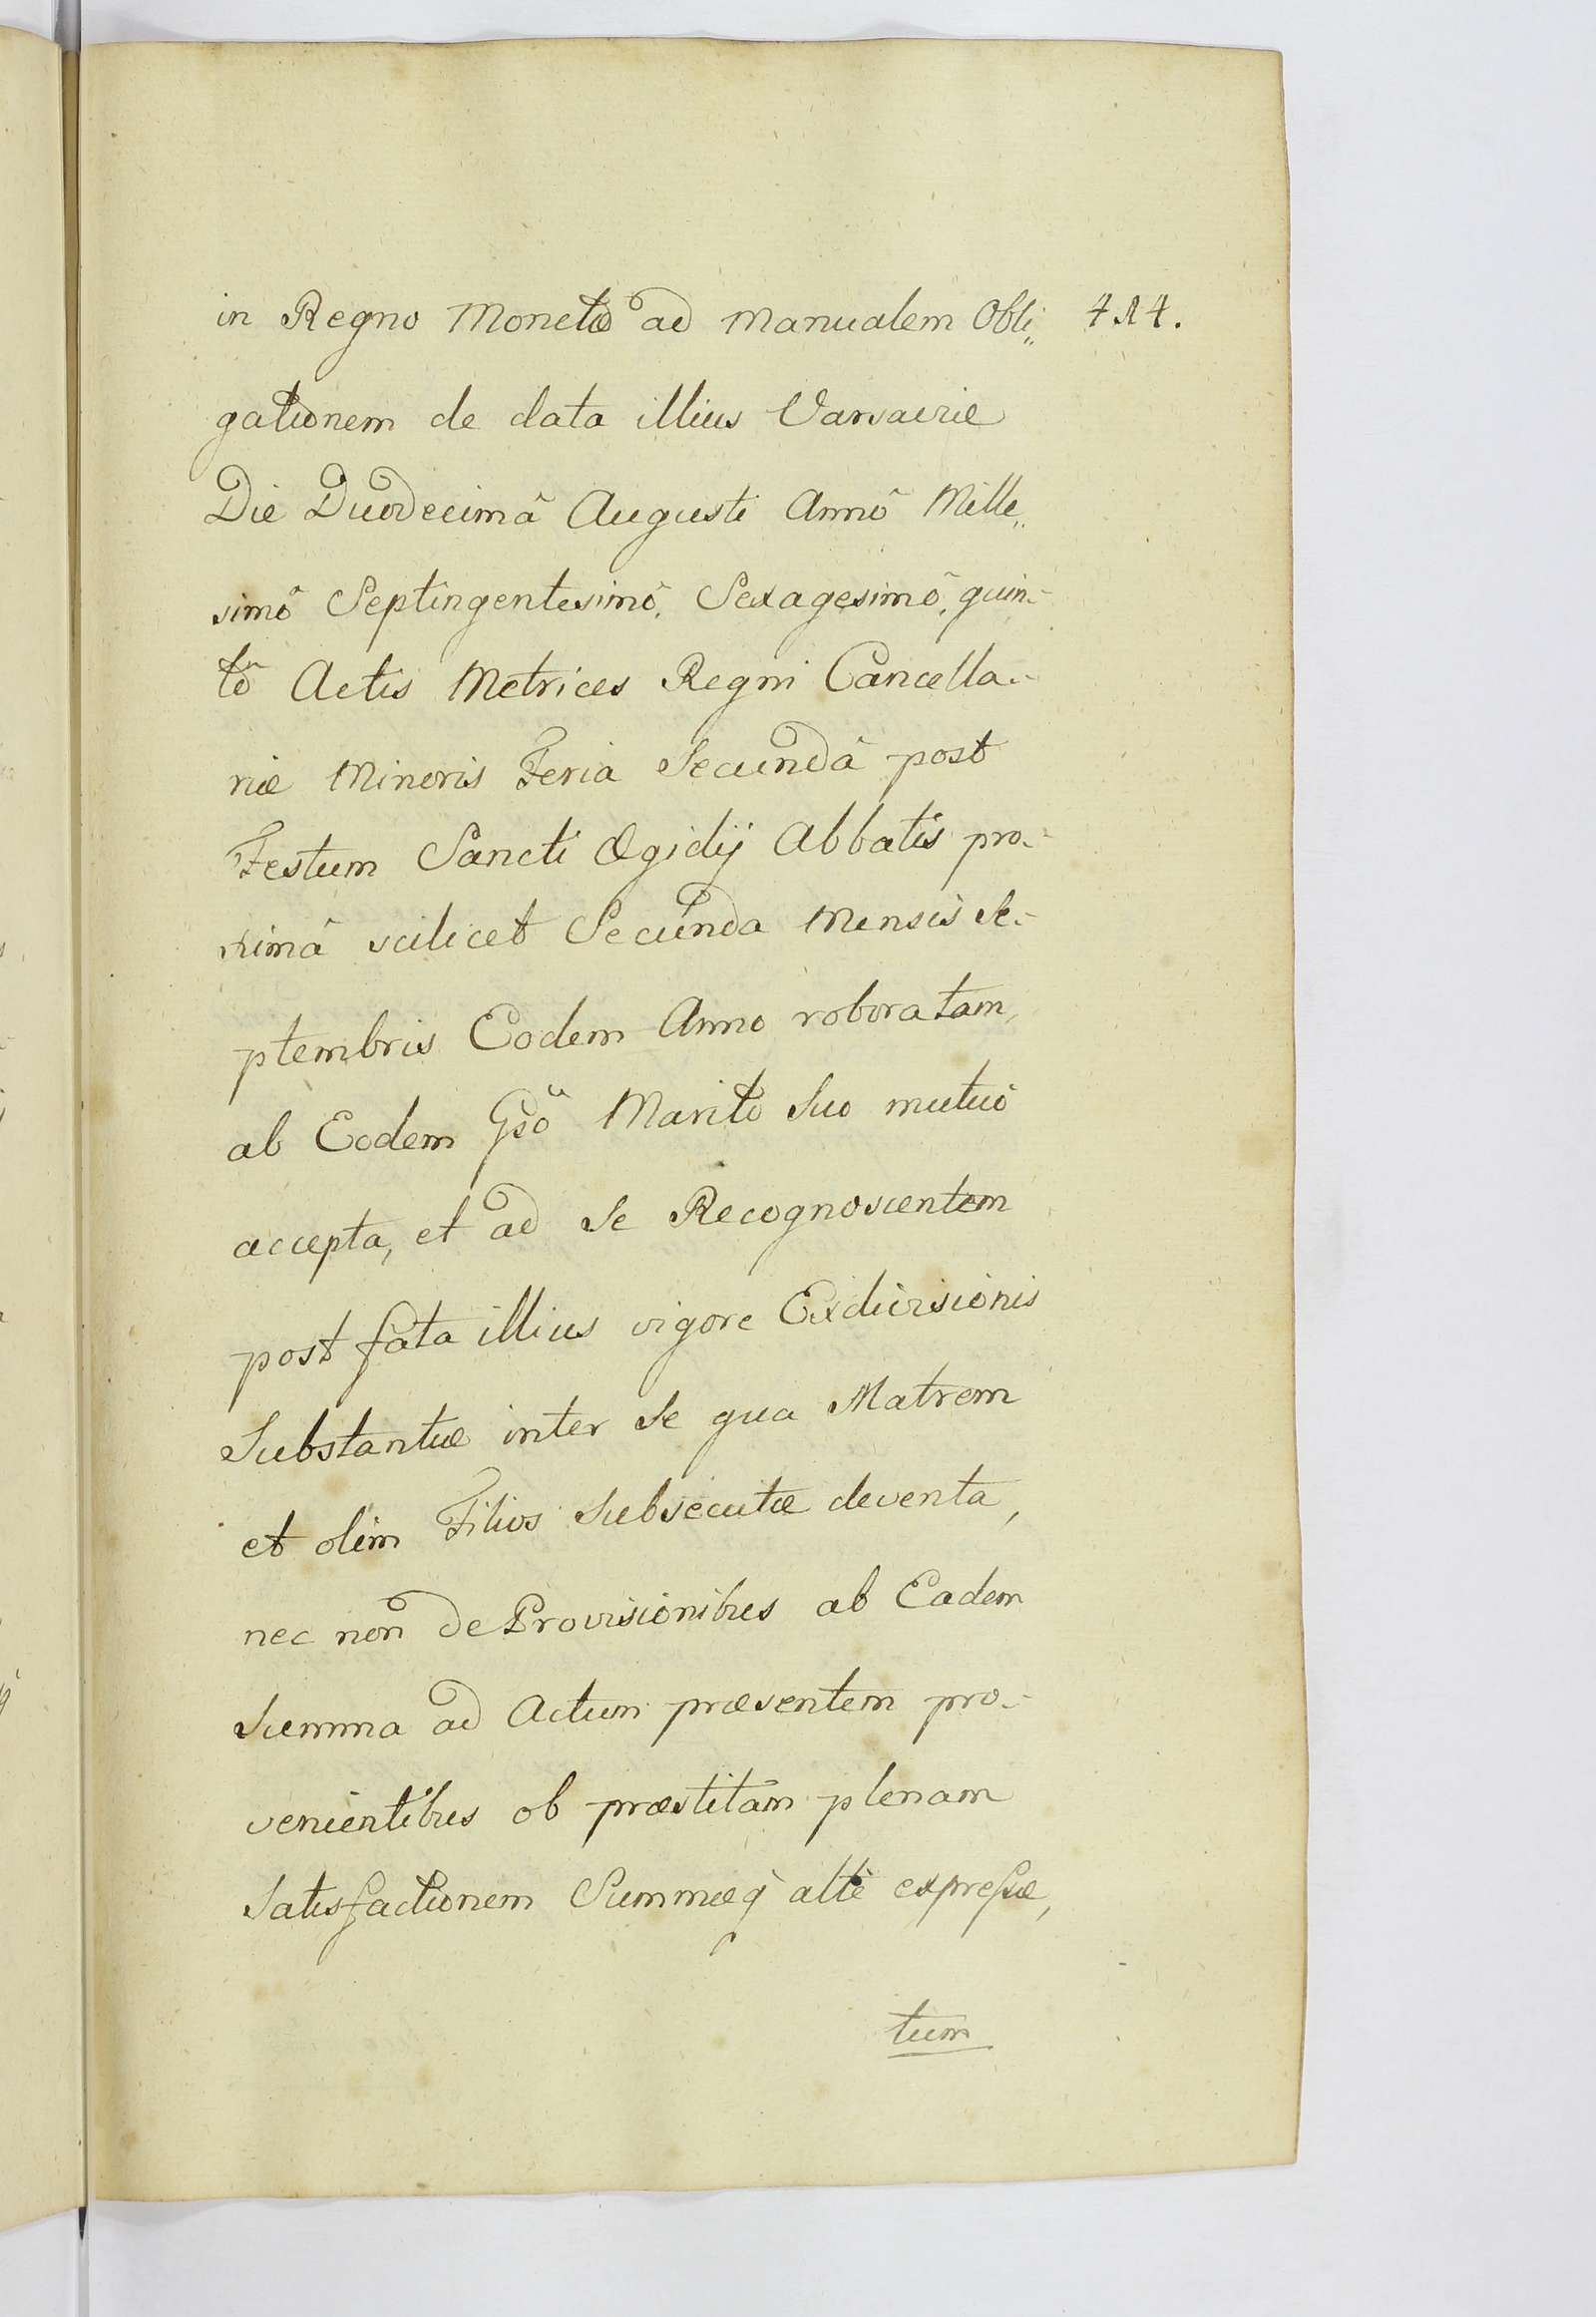 in Regno Monetæ ad Manualem Obli„ 414.
gationem de data illius Varsaviæ
Die Duodecimâ Augusti Annô Mille„
simô Septingentesimô, Sexagesimô, quin-
tô Actis Metrices Regni Cancella-
riæ Minoris Feria Secundâ post
Festum Sancti Ægidij Abbatis pro-
ximâ scilicet Secunda Mensis Se-
ptembris Eodem Anno roboratam,
ab Eodem Gsô Maritô Suo mutuô
accepta, et ad Se Recognoscentem
post fata illius vigore Exdivisionis
Substantiæ inter Se qua Matrem
et olim Filios Subsecutæ deventa,
nec non de Provisionibus ab Eadem
Summa ad Actum præsentem pro-
venientibus ob præstitam plenam
Satisfactionem Summæq̀ altè expreſsæ,
tum